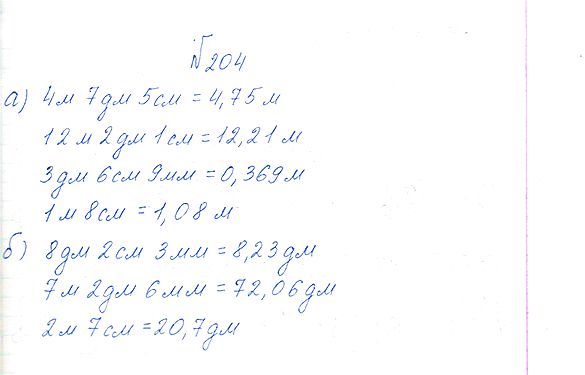 №204
а) 4м 7дм 5см = 4,75 м
12 м 2 дм 1 см = 12,21 м
3дм 6см 9мм = 0,369м
1 м 8см = 1,08 м
б) 8дм 2см 3мм = 8,23дм
7м 2дм 6мм = 72,06дм
2м 7см = 20,7дм